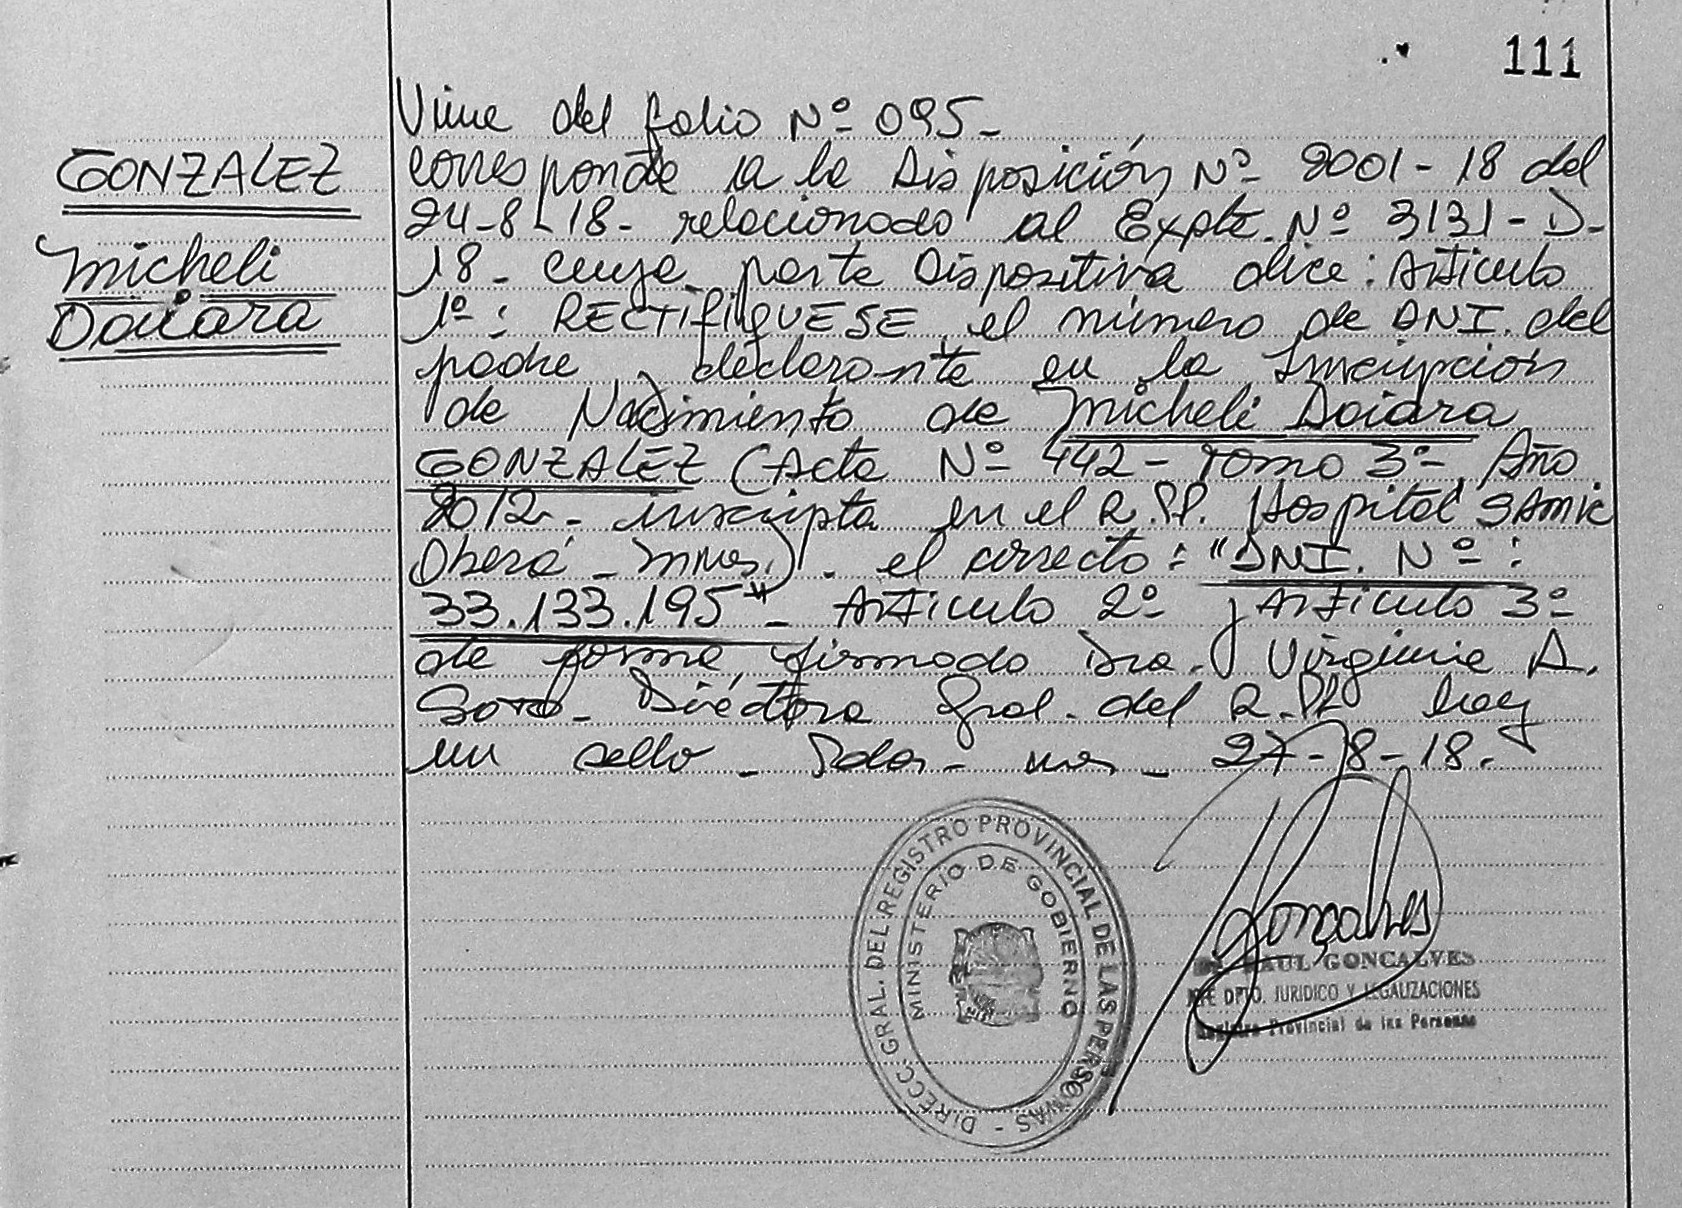 111
GONZALEZ
Micheli
Daiara
Viene del folio Nº 095-
corresponde a la Disposición Nº 2001-18 del
24-8-18- relacionado al Expte. Nº 3131-D-
18- cuya parte Dispositiva dice: Artículo
1º: RECTIFIQUESE el número de DNI. del
padre, declarante en la Inscripción
de Nacimiento de Micheli Daiara
GONZALEZ (Acta Nº 442- Tomo 3º- Año
2012- inscripta en el R.P.P. Hospital SAMIC
Oberá - Mnes.)- el correcto: "DNI. Nº:
33.133.195"- Artículo 2º y Artículo 3º
de forma, firmado Dra. Virginia A.
Soto- Directora Gral. del R.P.P. hay
un sello - Pdas- Mnes- 27-8-18.-
DIRECC. GRAL. DEL REGISTRO PROVINCIAL DE LAS PERSONAS -
MINISTERIO DE GOBIERNO
Gonçalves
RAUL GONCALVES
JEFE DPTO. JURIDICO Y LEGALIZACIONES
Registro Provincial de las Personas